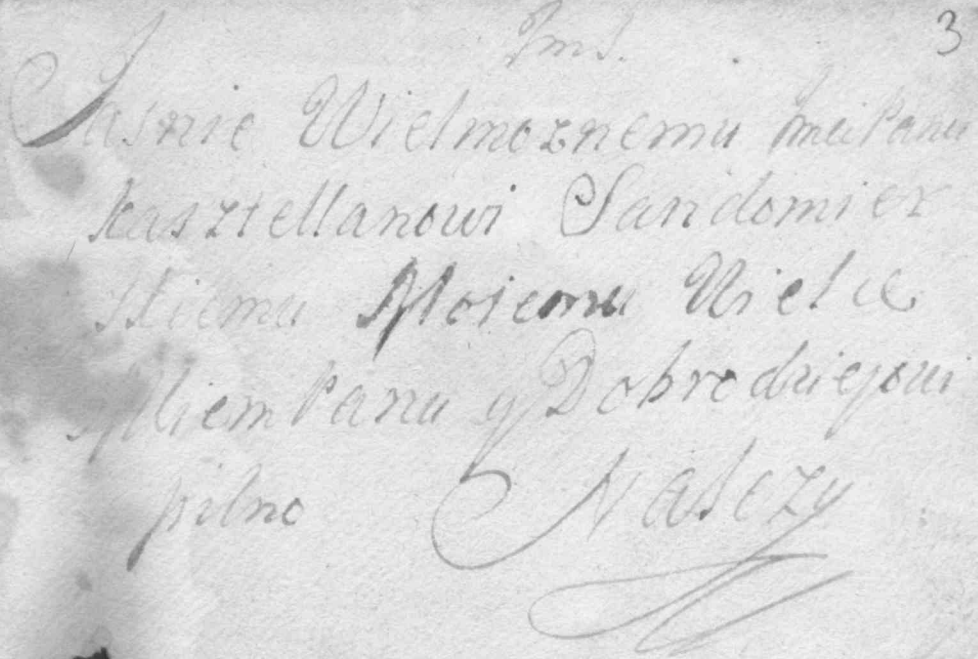 3
Jms.
Jasnie Wielmoznemu Jmci Panu
Kasztellanowi Sandomier
skiemu Mojemu Wielce
Młemu Panu y Dobrodziejowi
pilno Nalezy